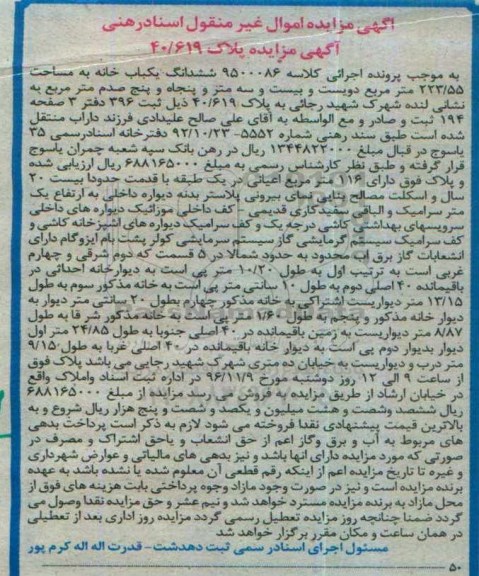 آگهی مزایده اموال غیر منقول اسناد رهنی
آگهی مزایده پلاک ۴۰/۶۱۹
به موجب پرونده اجرائی کلاسه ۹۵۰۰۰۸۶ ششدانگ یکباب خانه به مساحت
۲۲۳/۵۵ متر مربع دویست و بیست و سه متر و پنجاه و پنج صدم متر مربع به
نشانی لنده شهرک شهید رجائی به پلاک ۴۰/۶۱۹ ذیل ثبت ۳۹۶ دفتر ۳ صفحه
۱۹۴ ثبت و صادر و مع الواسطه به آقای علی صالح علیدادی فرزند داراب منتقل
شده است طبق سند رهنی شماره ۵۵۵۲– ۹۲/۱۰/۲۳ دفترخانه اسنادرسمی ۳۵
یاسوج در قبال مبلغ ۱۳۴۴۸۲۳۰۰۰ ریال در رهن بانک سپه شعبه چمران یاسوج
قرار گرفته و طبق نظر کارشناس رسمی به مبلغ ۶۸۸۱۶۵۰۰۰ ریال ارزیابی شده
و پلاک فوق دارای ۱۱۶ متر مربع اعیانی در یک طبقه با قدمت حدودا بیست ۲۰
سال و اسکلت مصالح بنایی نمای بیرونی پلاستر بدنه دیواره داخلی به ارتفاع یک
متر سرامیک و الباقی سفیدکاری قدیمی کف داخلی موزائیک دیواره های داخلی
سرویسهای بهداشتی کاشی درجه یک و کف سرامیک دیواره های آشپزخانه کاشی و
کف سرامیک سیستم گرمایشی گاز سیستم سرمایشی کولر پشت بام ایزوگام دارای
انشعابات گاز برق آب محدود به حدود شمالا در ۵ قسمت که دوم شرقی و چهارم
غربی است به ترتیب اول به طول ۱۰/۲۰ متر پی است به دیوارخانه احداثی در
باقیمانده ۴۰ اصلی دوم به طول ۱۰ سانتی متر پی است به خانه مذکور سوم به طول
۱۳/۱۵ متر دیواریست اشتراکی به خانه مذکور چهارم بطول ۲۰ سانتی متر دیوار به
دیوار خانه مذکور و پنجم به طول ۱/۶۰ متر پی است به خانه مذکور شرقا به طول
۸/۸۷ متر دیواریست به زمین باقیمانده در ۴۰ اصلی جنوبا به طول ۲۴/۸۵ متر اول
دیوار بدیوار دوم پی است به دیوار خانه باقیمانده در ۴۰ اصلی غربا به طول ۹/۱۵
متر درب و دیواریست به خیابان ده متری شهرک شهید رجایی می باشد پلاک فوق
از ساعت ۹ الی ۱۲ روز دوشنبه مورخ ۹۶/۱۱/۹ در اداره ثبت اسناد واملاک واقع
در خیابان ارشاد از طریق مزایده به فروش می رسد مزایده از مبلغ ۶۸۸۱۶۵۰۰۰
ریال ششصد وشصت و هشت میلیون و یکصد و شصت و پنج هزار ریال شروع و به
بالاترین قیمت پیشنهادی نقدا فروخته می شود لازم به ذکر است پرداخت بدهی
های مربوط به آب و برق وگاز اعم از حق انشعاب و یاحق اشتراک و مصرف در
صورتی که مورد مزایده دارای آنها باشد و نیز بدهی های مالیاتی و عوارض شهرداری
و غیره تا تاریخ مزایده اعم از اینکه رقم قطعی آن معلوم شده یا نشده باشد به عهده
برنده مزایده است و نیز در صورت وجود مازاد وجوه پرداختی بابت هزینه های فوق از
محل مازاد به برنده مزایده مسترد خواهد شد و نیم عشر و حق مزایده نقدا وصول می
گردد ضمنا چنانچه روز مزایده تعطیل رسمی گردد مزایده روز اداری بعد از تعطیلی
در همان ساعت و مکان مقرر برگزار خواهد شد
مسئول اجرای اسناد رسمی ثبت دهدشت- قدرت اله اله کرم پور
۵۰